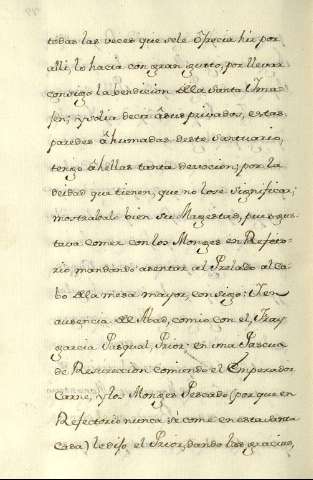 todas las veces que sele ôfrecia hir por
alli, lo hacia con gran gusto, por llevar
consigo la bendicion della Santa Ymá-
gen; y solia decir âsus privados, estas
paredes âhumadas deste Santuario,
tengo âhellas tanta devocion; por la
deidad que tienen, que no lose significar;
mostrabalo bien su Magestad, pues gus-
tava comer con los Monges en Refeto-
rio, mandando asentar al Prelado al ca-
bo dela mesa mayor, consigo: Y en
ausencia del Abad, comio con el, Fray
garcia Pasqual, Prior: en una Pascua
de Resurrecion comiendo el Emperador
Carne, y los Monges Pescado (porque en
Refectorio nunca se come en esta santa
Casa) le dijo el Prior, dando las gracias,